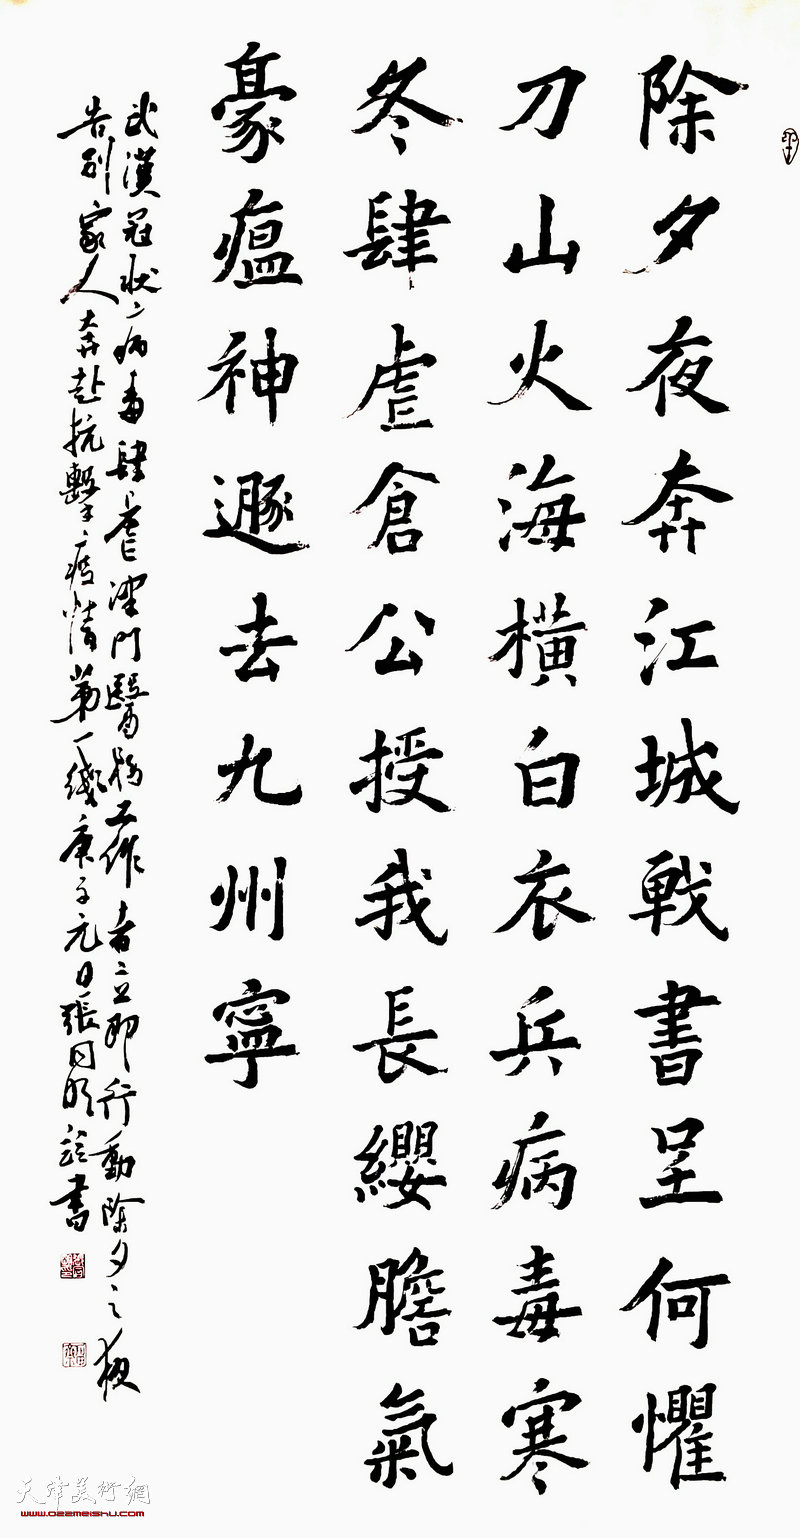 除夕夜奔江城戰書呈何懼
刀山火海橫白衣兵病毒寒
冬肆虐倉公授我長纓膽氣
豪瘟神遯去九州寧
武漢冠狀病毒肆虐津門醫務工作者立即行動除夕之夜
告別家人奔赴抗擊疫情第一綫庚子元日張同明書
天津美術網
www.022meishu.com